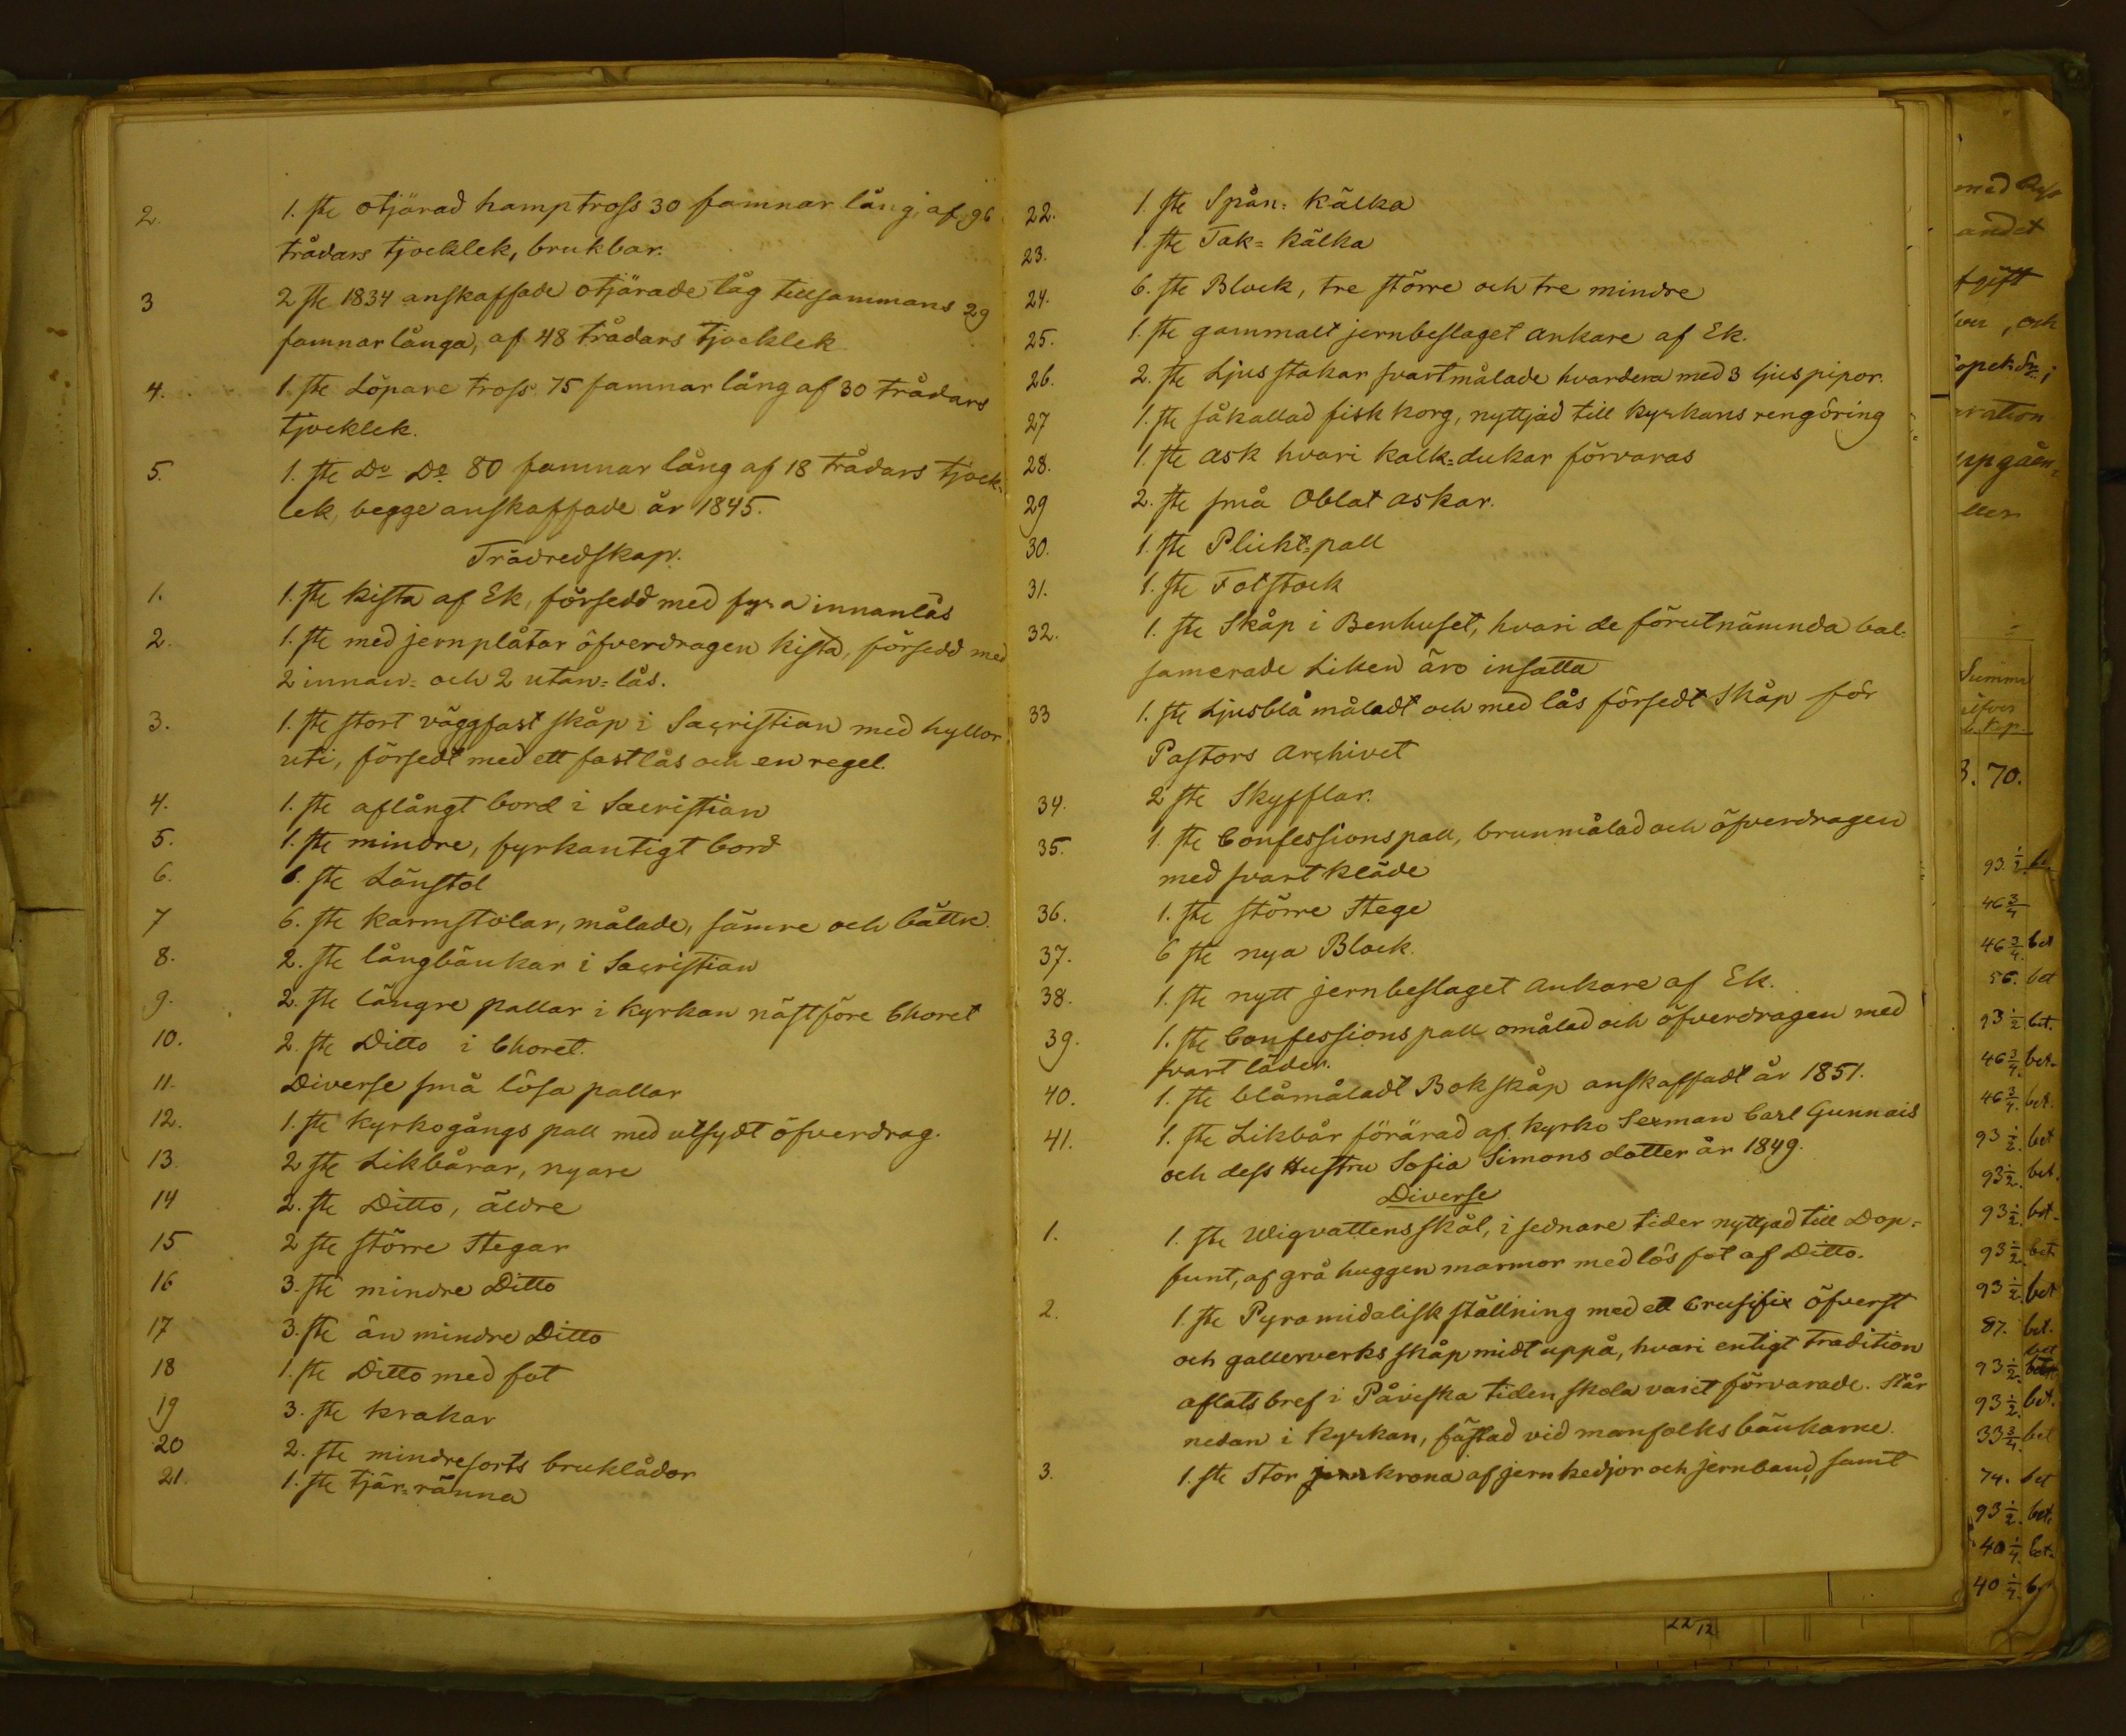 2. 1. ste otjärad hamptross 30 famnar lång, af 96
trådars tjocklek, brukbar.
3 2 ste 1834 anskaffade otjärade tåg tillsammans 29
famnar långa, af 48 trådars tjocklek
4. 1. ste Löpare tross 75 famnar lång af 30 trådars
tjocklek.
5. 1. ste Do Do 80 famnar lång af 18 trådars tjock-
lek, begge anskaffade år 1845.
Trädredskap.
1. 1. ste kista af Ek, försedd med fyra innanlås
2. 1. ste med jernplåtar öfverdragen kista, försedd med
2 innan- och 2 utan-lås.
3. 1. ste stort väggfast skåp i Sacristian med hyllor
uti, försedt med ett fast lås och en regel.
4. 1. ste aflångt bord i Sacristian
5. 1. ste mindre, fyrkantigt bord
6. 1. ste Länstol
7 6. ste karmstolar, målade, sämre och bättre.
8. 2. ste långbänkar i Sacristian
9. 2. ste längre pallar i kyrkan nästföre Choret
10. 2. ste Ditto i Choret.
11. Diverse små lösa pallar
12. 1. ste kyrkogångs pall med utsydt öfverdrag.
13. 2 ste Likbårar, nyare
14 2. ste Ditto, äldre
15 2 ste större Stegar
16 3. ste mindre Ditto
17 3. ste än mindre Ditto
18 1. ste Ditto med fot
19 3. ste krakar
20 2. ste mindre sorts bruklådor
21. 1. ste tjär-ränna
22. 1. ste Spån-kälka
23. 1. ste Tak-kälka
24. 6. ste Block, tre större och tre mindre
25. 1. ste gammalt jernbeslaget ankare af Ek.
26. 2. ste Ljusstakar svartmålade hvardera med 3 ljuspipor.
27 1. ste såkallad fisk korg, nyttjad till kyrkans rengöring
28. 1. ste ask hvari kalk-dukar förvaras
29 2. ste små Oblat askar.
30. 1. ste Plikt-pall
31. 1. ste Fotstock
32. 1. ste Skåp i Benhuset, hvari de förutnämnda bal-
samerade Liken äro insatta
33 1. ste Ljusblå måladt och med lås försedt Skåp för
Pastors Archivet
34. 2 ste Skyfflar.
35. 1. ste Confessionspall, brunmålad och öfverdragen
med svart kläde
36. 1. ste större Stege
37. 6 ste nya Block.
38. 1. ste nytt jernbeslaget ankare af Ek.
39. 1. ste Confessionspall omålad och öfverdragen med
svart läder.
40. 1. ste blåmåladt Bokskåp anskaffadt år 1851.
41. 1. ste Likbår förärad af kyrko Sexman Carl Gunnais
och dess Hustru Sofia Simons dotter år 1849.
Diverse
1. 1. ste Wigvattensskål, i sednare tider nyttjad till Dop-
funt, af grå huggen marmor med lös fot af Ditto.
2. 1. ste Pyramidalisk ställning med ett Crusifix öfverst
och gallerverks skåp midt uppå, hvari enligt tradition
aflatsbref i Påviska tiden skola varit förvarade. Står
nedan i kyrkan, fästad vid manfolksbänkarne.
3. 1. ste Stor krona af jernkedjor och jernband, samt
med
andet
och
ration
ller
Summa
öfver
3. 70.
93 1/2.
46 3/4
46 3/4. bet
56. bet
93 1/2 bet.
46 3/4. bet.
46 3/4. bet.
93 1/2. bet
93 1/2. bet.
93 1/2. bet.
93 1/2. bet
93 1/2. bet
87. bet.
93 1/2. bet
93 1/2. bet.
33 3/4. bet
74. bet
93 1/2. bet.
40 1/4. bet.
40 1/4.
22/12